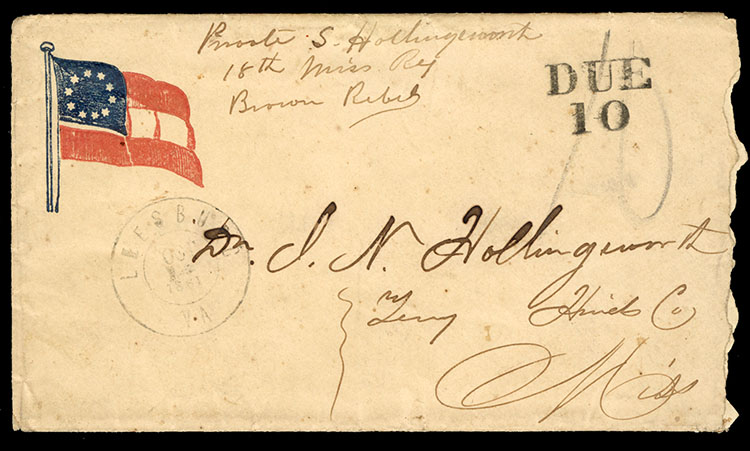 Private S. Hollingsworth
18th Miss Reg
Brown Rebels
DUE
10
10
LEESBURG
1861
VA
Dr. J. N. Hollingsworth
Terry Hinds Co
Miss